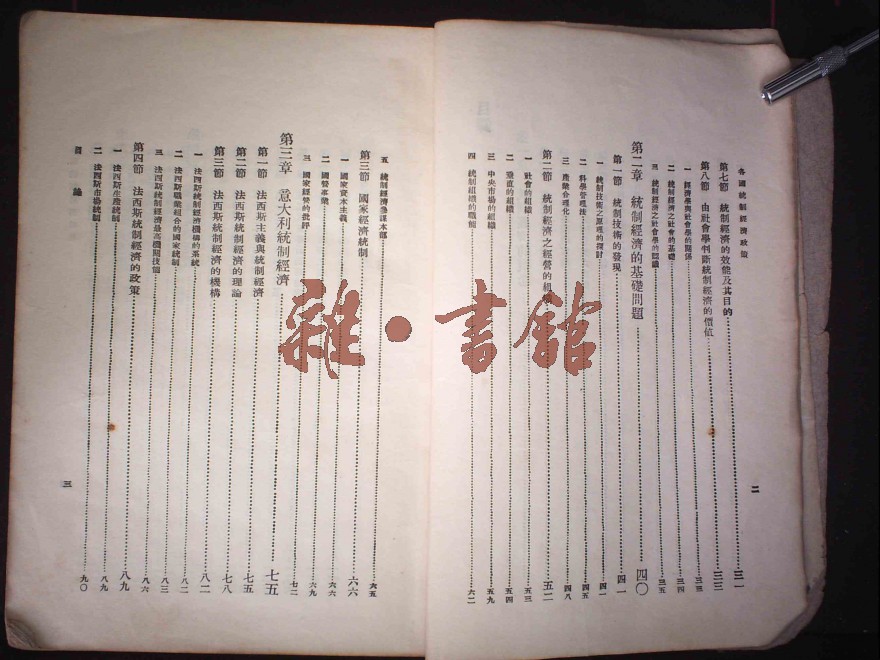 各國統制經濟政策
第七節 統制經濟的效能及其目的……三一
第八節 由社會學判斷統制經濟的價值……三三
一 經濟學與社會學的關係……三三
二 統制經濟之社會學的基礎……三四
三 統制經濟之社會學的認識……三五
第二章 統制經濟的基礎問題……四〇
第一節 統制技術的發現……四一
一 統制技術之原理的探討……四二
二 科學管理法……四五
三 產業合理化……四八
第二節 統制經濟之經營的組織……五二
一 社會的組織……五三
二 垂直的組織……五四
三 中央市場的組織……五九
四 統制組織的職能……六二
二
五 統制經濟參謀本部……六五
第三節 國家經濟統制……六六
一 國家資本主義……六六
二 國營事業……六九
三 國家經營的批評……七二
第三章 意大利統制經濟……七五
第一節 法西斯主義與統制經濟……七五
第二節 法西斯統制經濟的理論……七八
第三節 法西斯統制經濟的機構……八二
一 法西斯統制經濟機構的系統……八二
二 法西斯職業組合的國家統制……八三
三 法西斯統制經濟最高機關技能……八六
第四節 法西斯統制經濟的政策……八九
一 法西斯生產統制……八九
二 法西斯市場統制……九〇
目 論
三
雜·書館